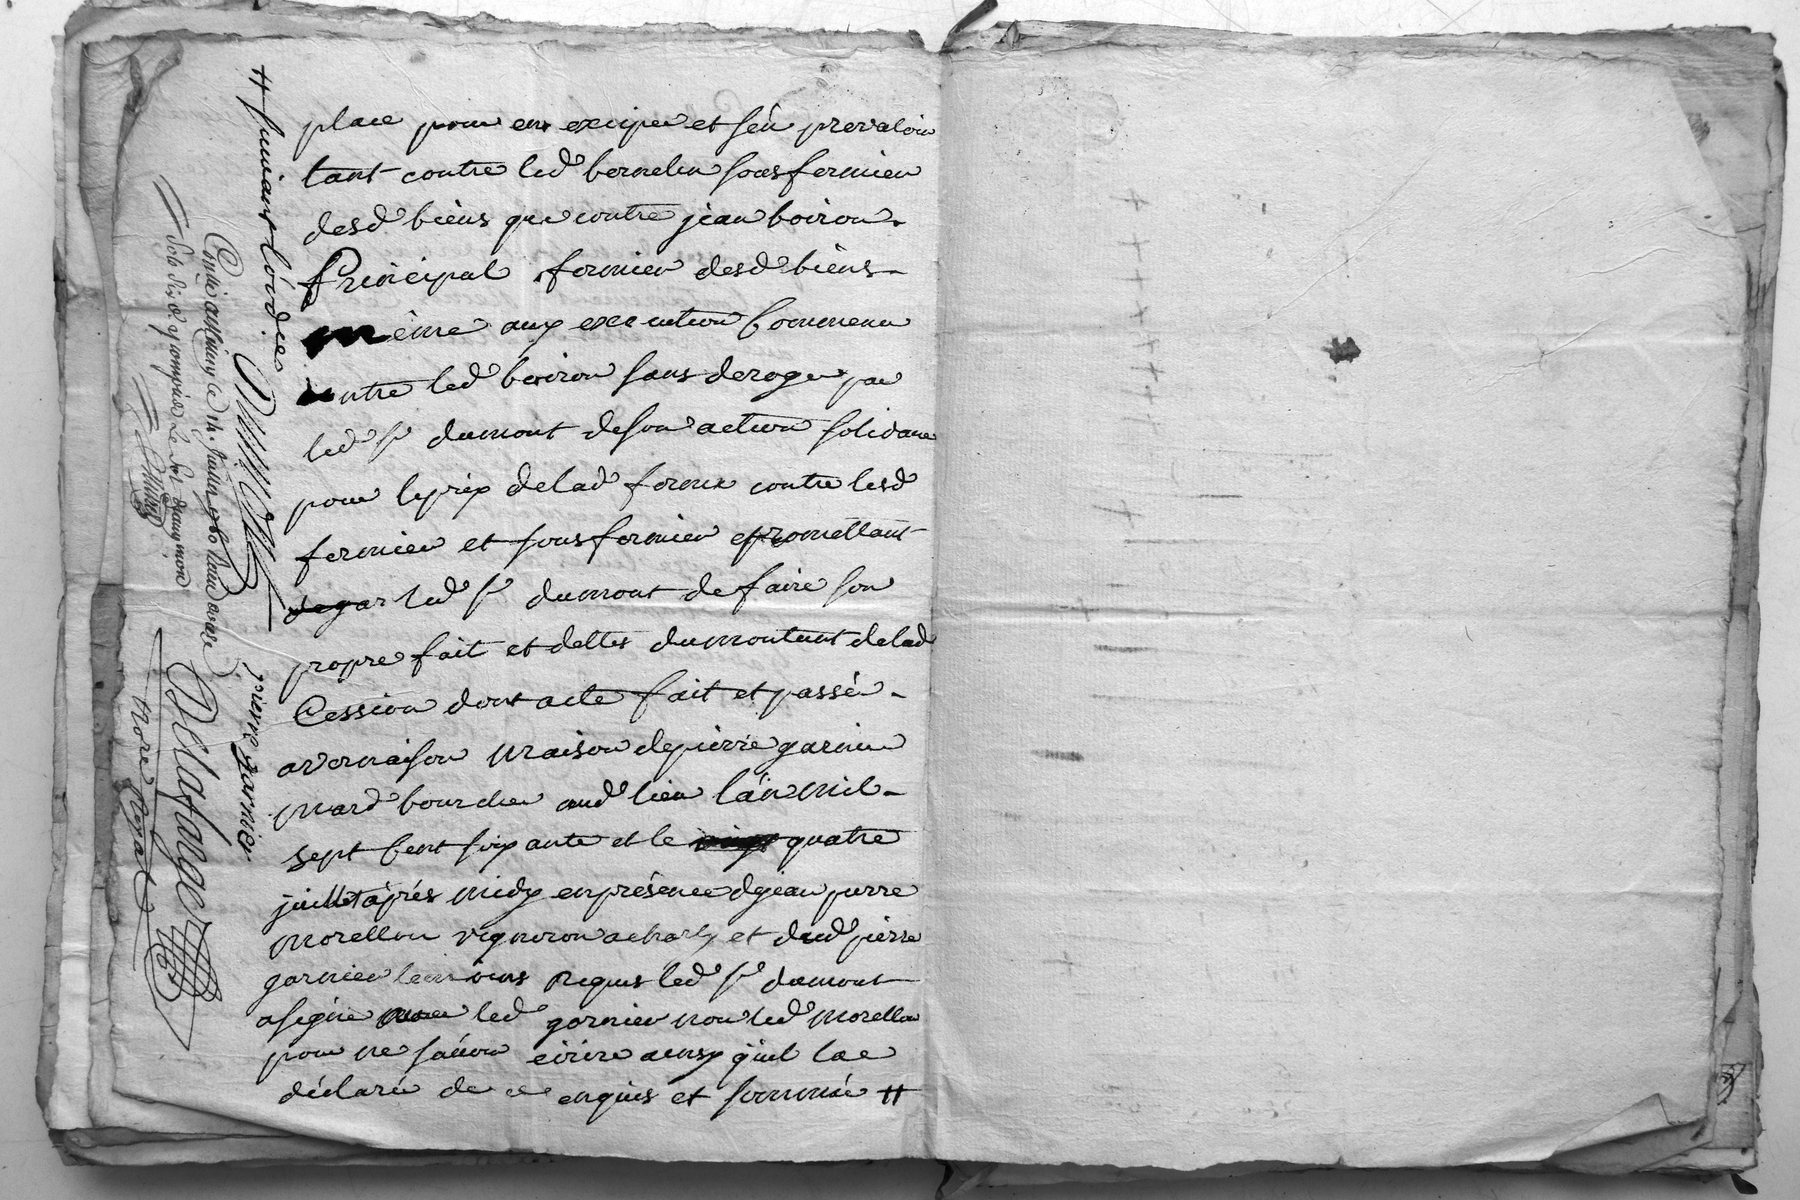 place pour en exciper et sén prevaloir
tant contre led bernelin sous fermier
desd biens que contre jean boiron
Principal fermier desd biens
même aux execution
contre led boiron sans deroger par
led Sr dumont de son action solidaire
pour le prix delad ferme contre lesd
fermier et sous fermier promettant
led Sr dumont de faire son
propre fait et dettes du montant delad
Cession dont acte fait et passé
a vernaison maison de pierre garnier
mard boucher aud lieu lán mil
sept Cent soixante et le quatre
juillet aprés midy en présence de jean pierre
morellon vigneron a charly et dud pierre
garnier temoins Requis led Sr dumont
a signé led garnier non led morellon
pour ne sávoir écrire ainsy quil la
déclaré de ce enquis et sommé #
# suivant lórdce
pierre garnier
Delafarge
nore Royal